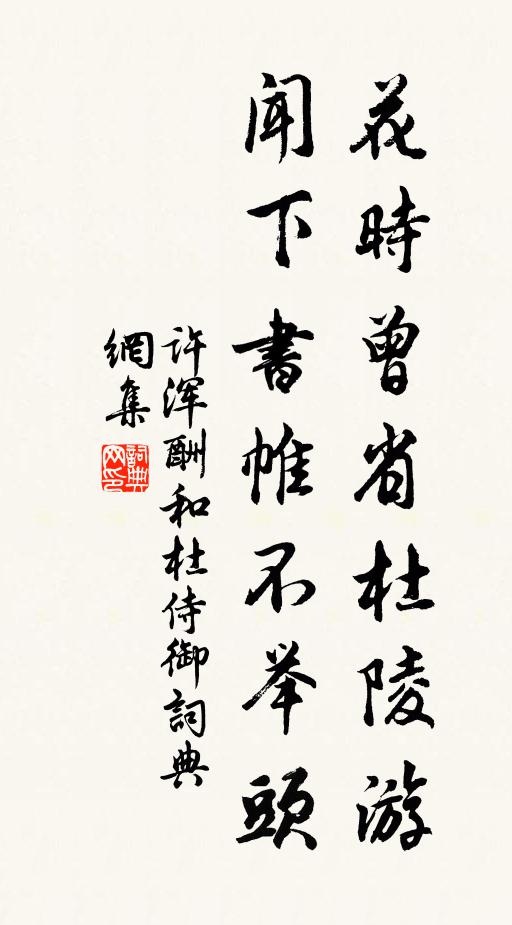 花時曾省杜陵游
闻下書帷不举頭
许浑酬和杜侍御詞典
網集
詞典
网印